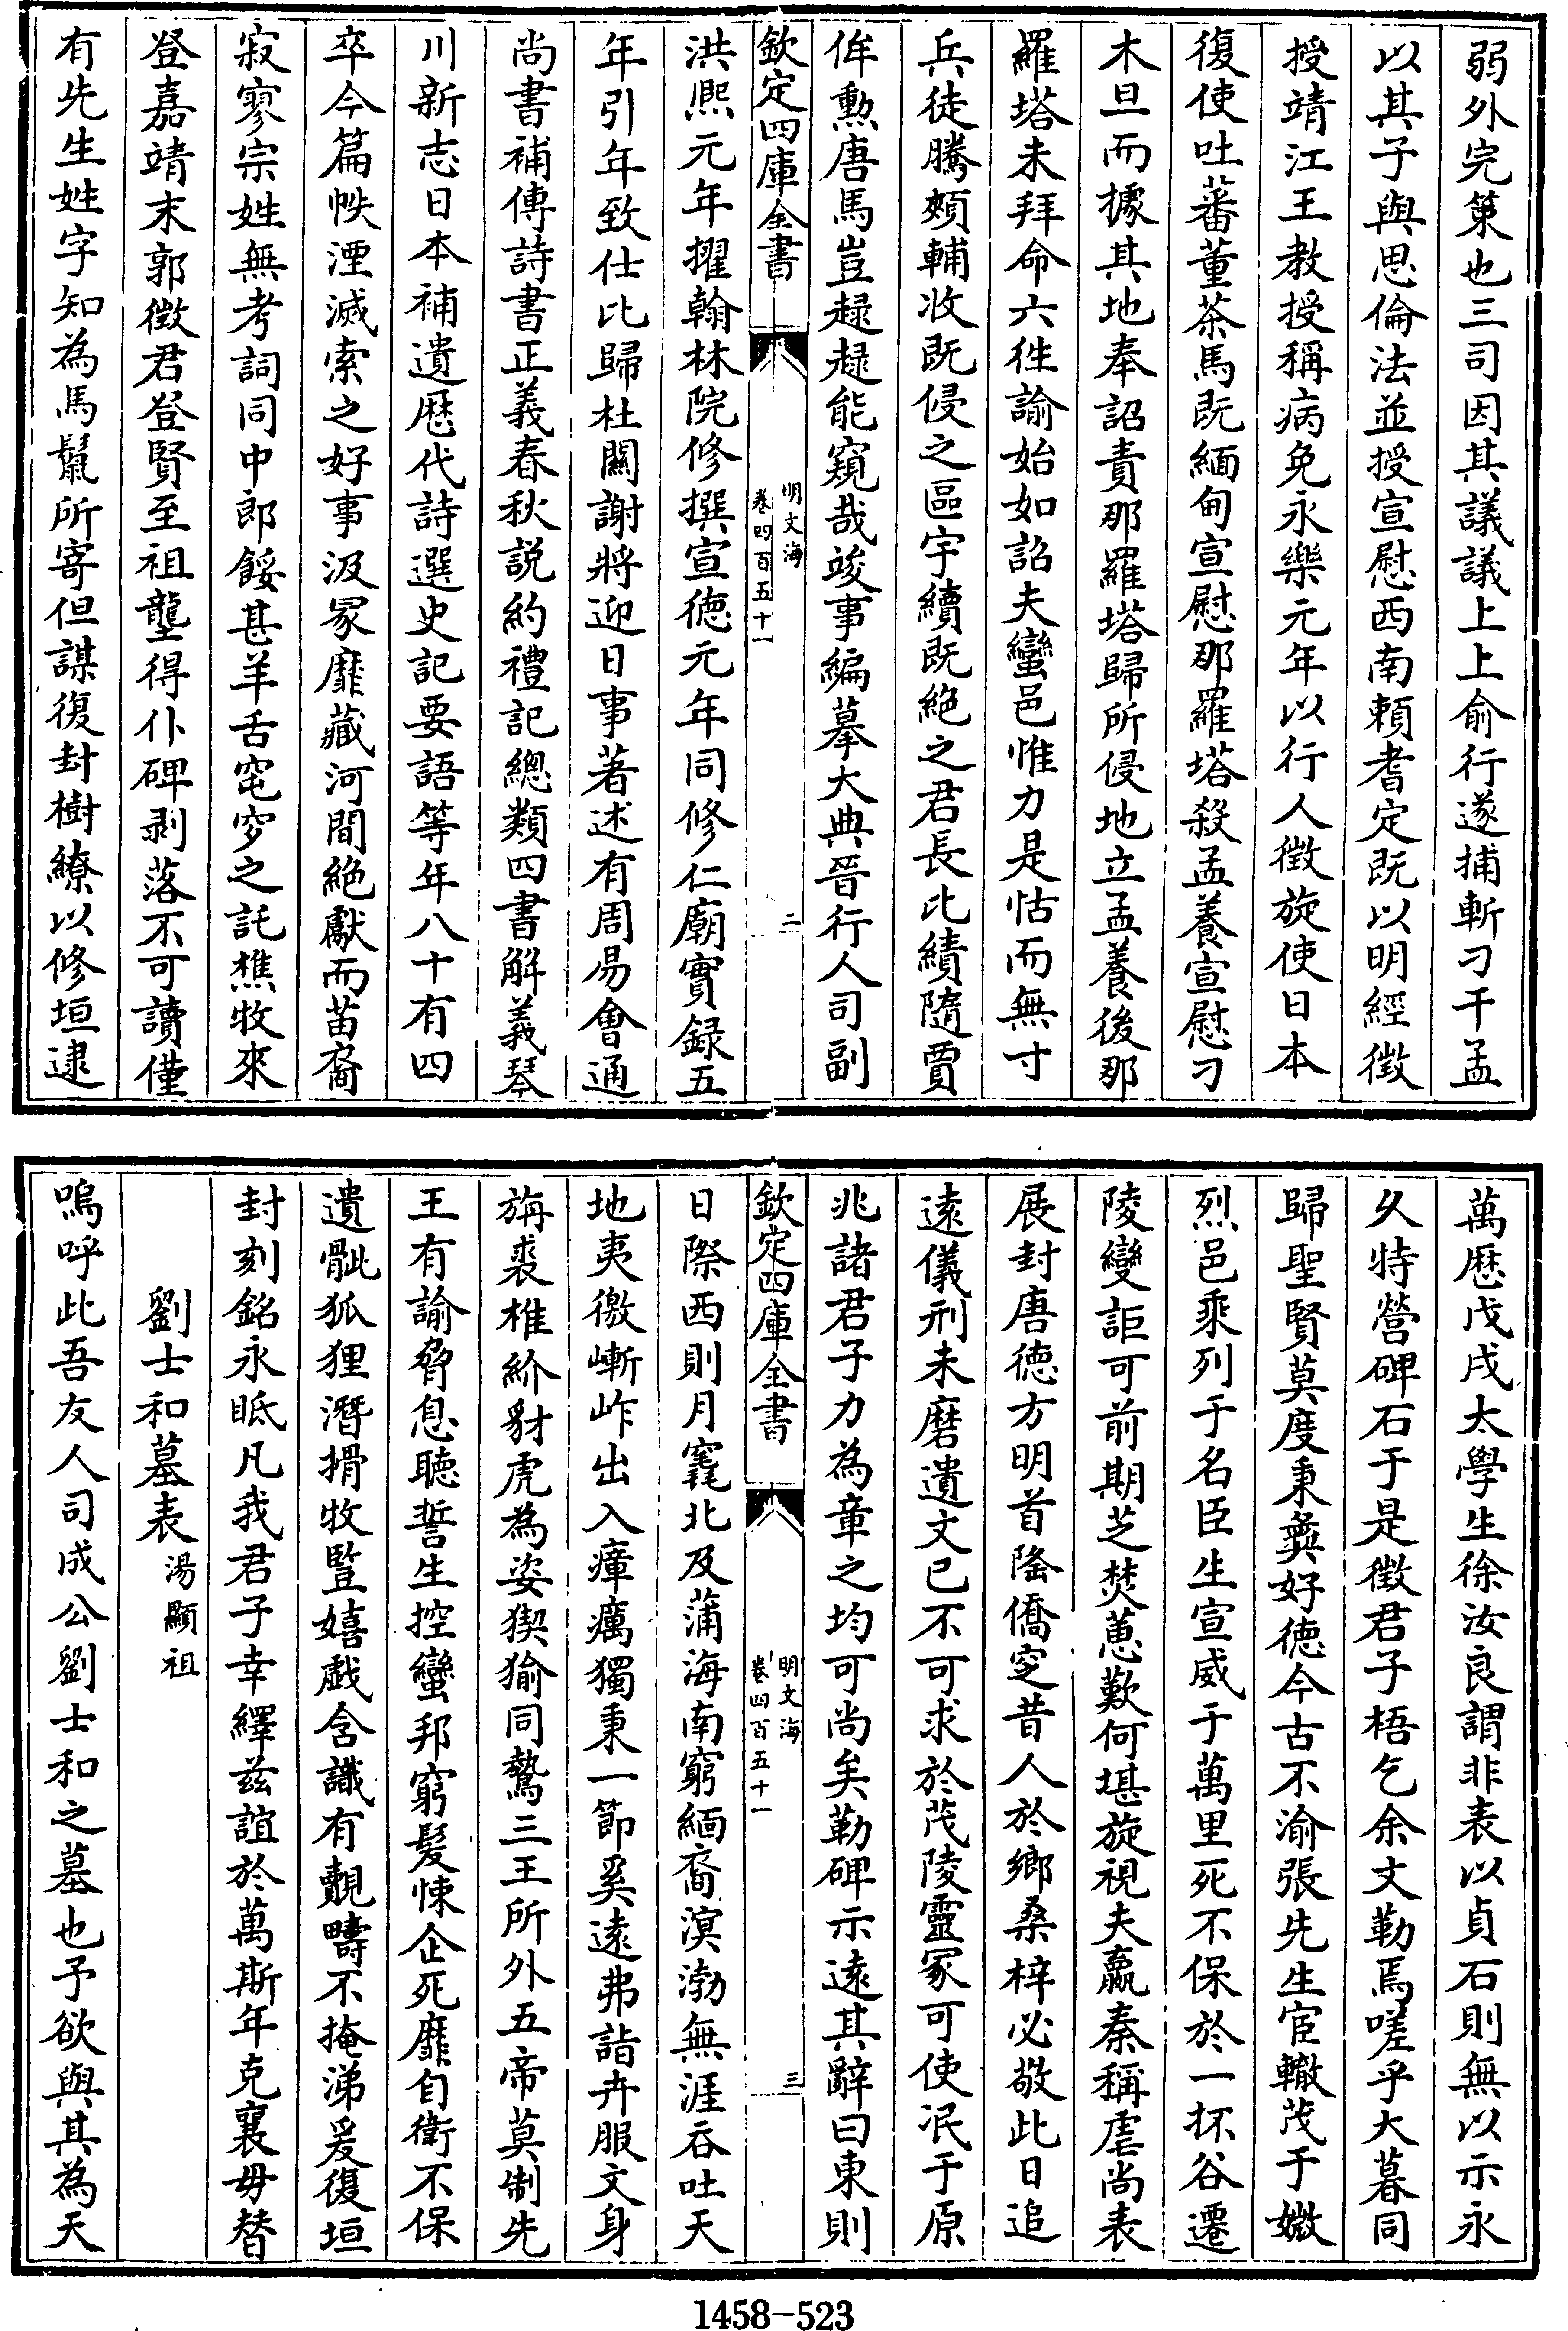 弱外完第也三司因其議議上上俞行遂捕斬刁干孟
以其子與思倫法並授宣慰西南賴耆定既以明經徵
授靖江王教授稱病免永樂元年以行人徵旋使日本
復使吐蕃董茶馬既緬甸宣慰那羅塔殺孟養宣慰刁
木旦而據其地奉詔責那羅塔歸所侵地立孟養後那
羅塔未拜命六徃諭始如詔夫蠻邑惟力是怙而無寸
兵徒騰頰輔收既侵之區宇續既絶之君長比績隨賈
侔勲唐馬豈趢趢能窺哉竣事編摹大典晉行人司副
欽定四庫全書
明文海
卷四百五十一
二
洪熈元年擢翰林院修撰宣徳元年同修仁廟實録五
年引年致仕比歸杜闗謝將迎日事著述有周易會通
尚書補傳詩書正義春秋説約禮記總類四書解義琴
川新志日本補遺歴代詩選史記要語等年八十有四
卒今篇帙湮滅索之好事汲冡靡藏河間絶獻而苗裔
寂寥宗姓無考詞同中郎餒甚羊舌窀穸之託樵牧來
登嘉靖末郭徵君登賢至祖壟得仆碑剥落不可讀僅
有先生姓字知為馬鬛所寄但謀復封樹繚以修垣逮
萬歴戊戌太學生徐汝良謂非表以貞石則無以示永
久特營碑石于是徵君子梧乞余文勒焉嗟乎大暮同
歸聖賢莫度秉彞好徳今古不渝張先生宦轍茂于媺
烈邑乘列于名臣生宣威于萬里死不保於一抔谷遷
陵變詎可前期芝焚蕙歎何堪旋視夫嬴秦稱虐尚表
展封唐徳方明首隂僑窆昔人於鄉桑梓必敬此日追
逺儀刑未磨遺文已不可求於茂陵靈冡可使泯于原
兆諸君子力為章之均可尚矣勒碑示逺其辭曰東則
欽定四庫全書
明文海
卷四百五十一
三
日際西則月窟北及蒲海南窮緬裔溟渤無涯吞吐天
地夷徼嶃岝出入瘴癘獨秉一節奚逺弗詣卉服文身
旃裘椎紒豺虎為姿猰㺄同鷙三王所外五帝莫制先
王有諭脅息聽誓生控蠻邦窮髮悚企死靡自衛不保
遺骴狐狸潛搰牧豎嬉戯含識有覩疇不掩涕爰復垣
封刻銘永眂凡我君子幸繹兹誼於萬斯年克襄毋替
劉士和墓表湯顯祖
嗚呼此吾友人司成公劉士和之墓也予欲與其為天
1458-523